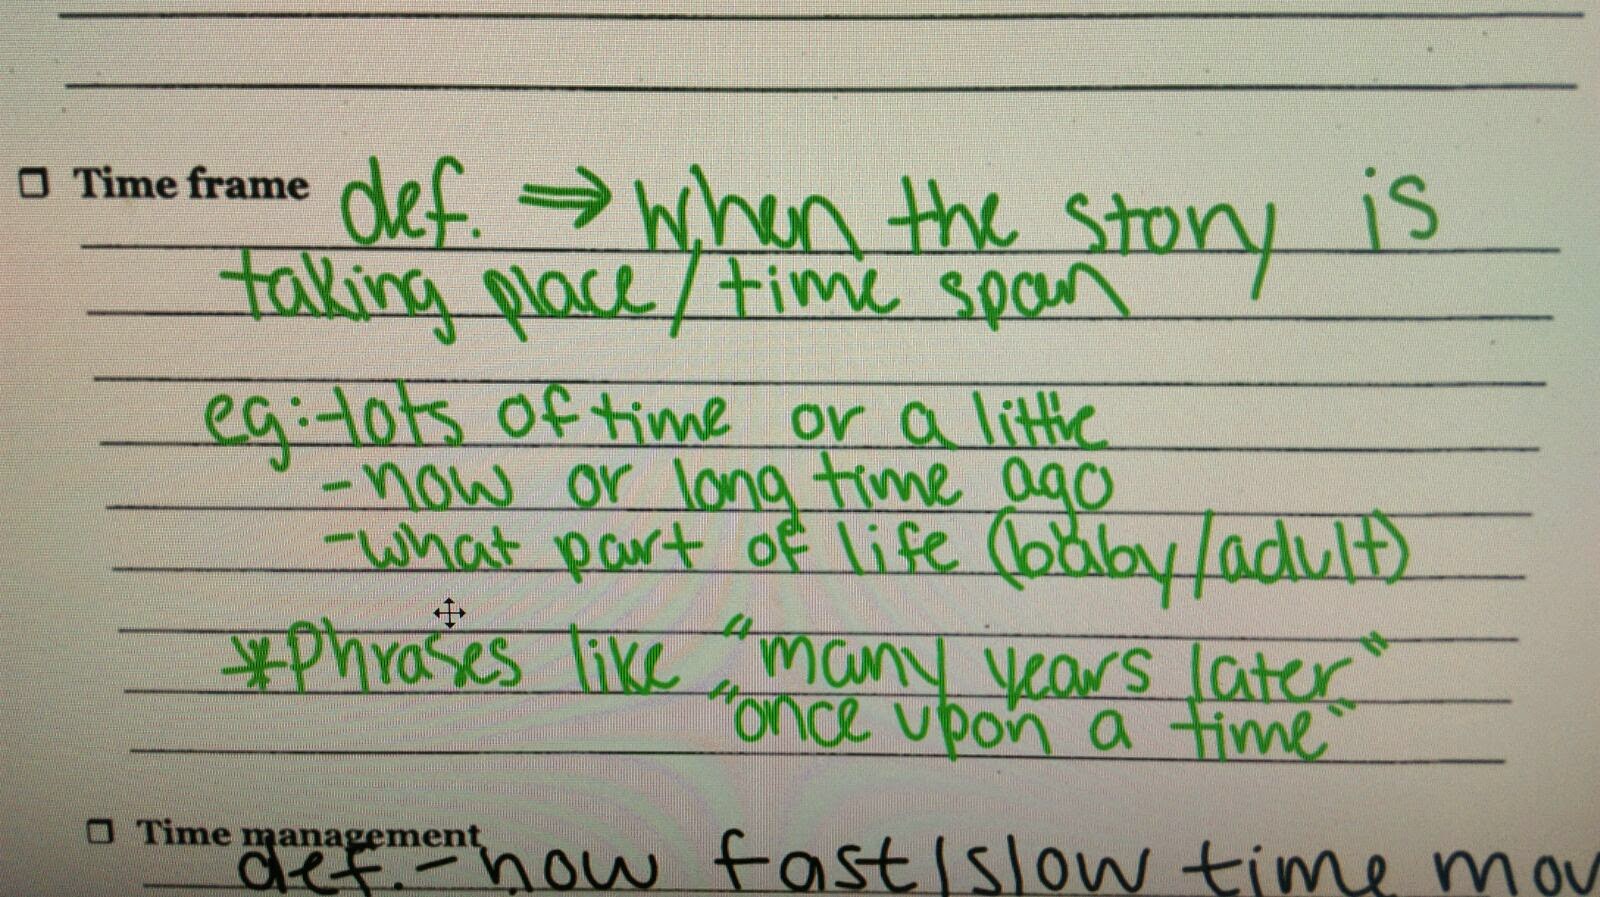 Time frame def. ⇒ When the story is
taking place/time span
eg:-lots of time or a little
-now or long time ago
-what part of life (baby/adult)
*Phrases like "many years later"
"once upon a time"
Time management
def.-how fast/slow time mov